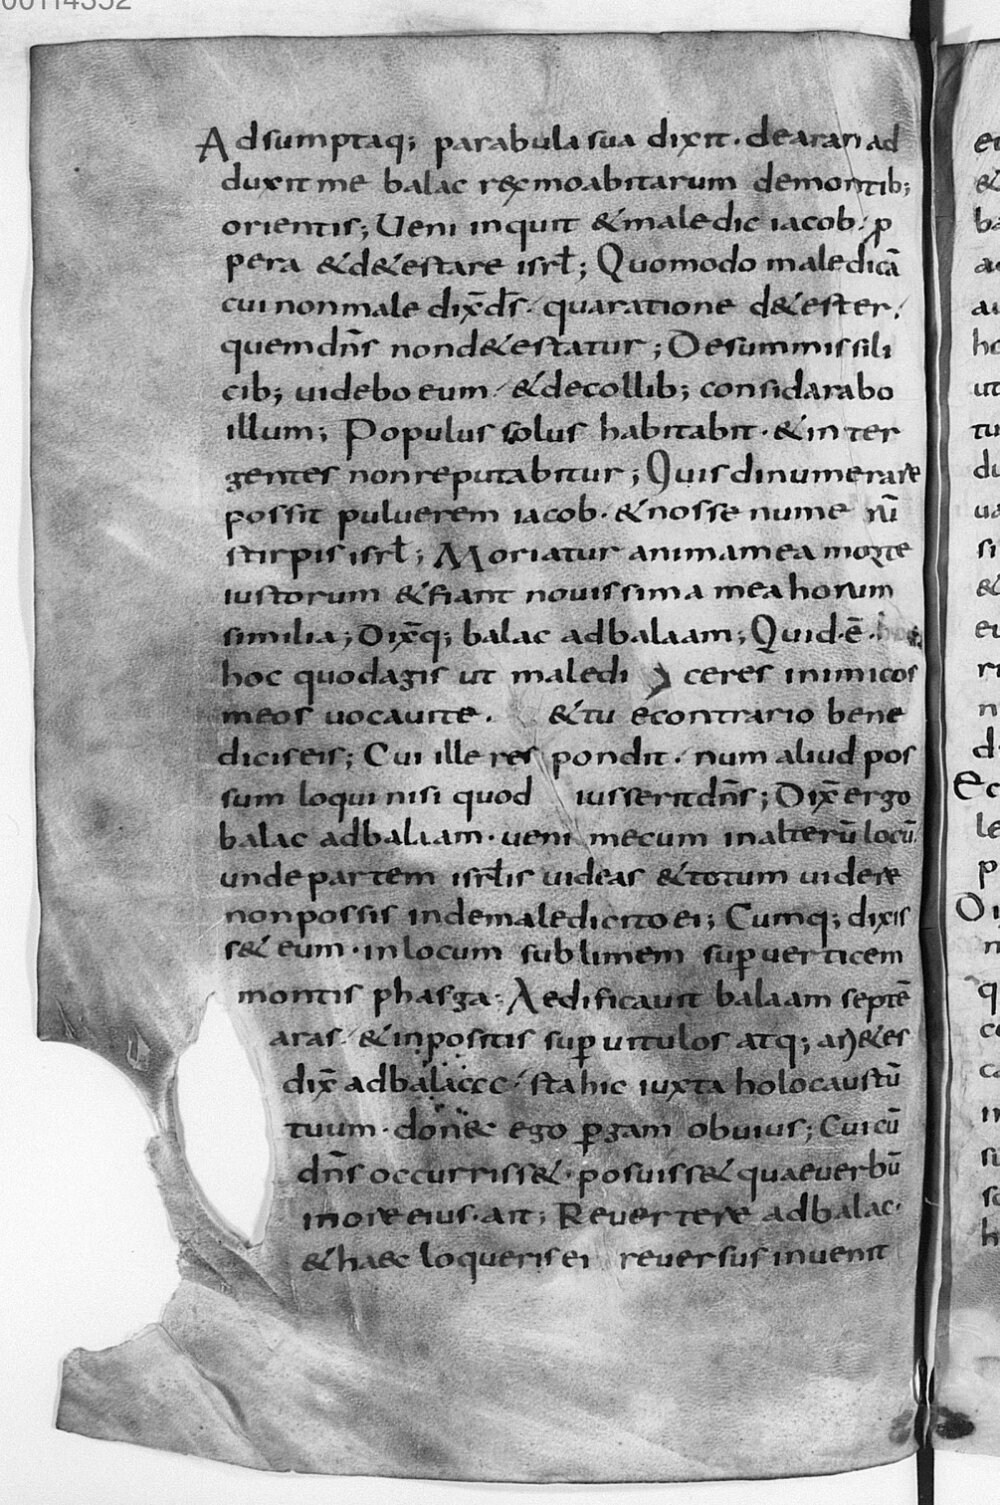 00114352
Adsumptaq; parabula sua dixit. dearan ad
duxit me balac rex moabitarum demontib;
orientis; Ueni inquit & maledic iacob. p
pera & d&estare isrł; Quomodo maledicā
cui non male dix̄ ds̄. qua ratione d&ester.
quem dn̄s non d&estatur; Desummis sili
cib; uidebo eum. & decollib; considarabo
illum; Populus solus habitabit. & inter
gentes non reputabitur; Quis dinumerare
possit puluerem iacob. & nosse nume rū
stirpis isrł; Moriatur anima mea morte
iustorum & fiant nouissima mea horum
similia; Dix̄q; balac ad balaam; Quid.ē.
hoc quod agis ut maledi ceres inimicos
meos uocauite. & tu econtrario bene
dicis eis; Cui ille res pondit. num aliud pos
sum loqui nisi quod iusserit dn̄s; Dix̄ ergo
balac ad balaam. ueni mecum in alterū locū.
unde partem isrłis uideas & totum uidere
non possis inde maledicito ei; Cumq; dixis
s& eum. in locum sublimem sup uerticem
montis phasga. Aedificauit balaam septē
aras. & inpositis sup uitulos atq; ari&es
dix̄ ad balaccc. sta hic iuxta holocaustū
tuum. donec ego pgam obuius; Cui cū
dn̄s occurriss&. posuiss& quae uerbū
in ore eius. ait; Reuertere ad balac.
& haec loqueris ei reuersus inuenit